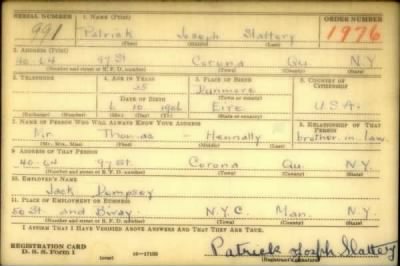 SERIAL NUMBER 1. NAME (Print) ORDER NUMBER
991 Patrick Joseph Slattery 1976
(First) (Middle) (Last)
2. ADDRESS (Print)
40-64 97 St. Corona Qu. N.Y.
(Number and street or R. F. D. number) (Town) (County) (State)
3. TELEPHONE 4. AGE IN YEARS 5. PLACE OF BIRTH 6. COUNTRY OF CITIZENSHIP
35 Dunmore
DATE OF BIRTH
6 10 Eire U.S.A.
(Exchange) (Number) (Mo.) (Day) (Yr.) (State or country)
7. NAME OF PERSON WHO WILL ALWAYS KNOW YOUR ADDRESS 8. RELATIONSHIP OF THAT PERSON
Mr. Thomas - Hennelly brother-in-law
(Mr., Mrs., Miss) (First) (Middle) (Last)
9. ADDRESS OF THAT PERSON
40-64 97 St. Corona Qu. N.Y.
(Number and street or R. F. D. number) (Town) (County) (State)
10. EMPLOYER'S NAME
Jack Dempsey
11. PLACE OF EMPLOYMENT OR BUSINESS
50 St. and B'way N.Y.C. Man. N.Y.
(Number and street or R. F. D. number) (Town) (County) (State)
I AFFIRM THAT I HAVE VERIFIED ABOVE ANSWERS AND THAT THEY ARE TRUE.
REGISTRATION CARD
D. S. S. Form 1 (over) 16—17105 Patrick Joseph Slattery
(Registrant's signature)